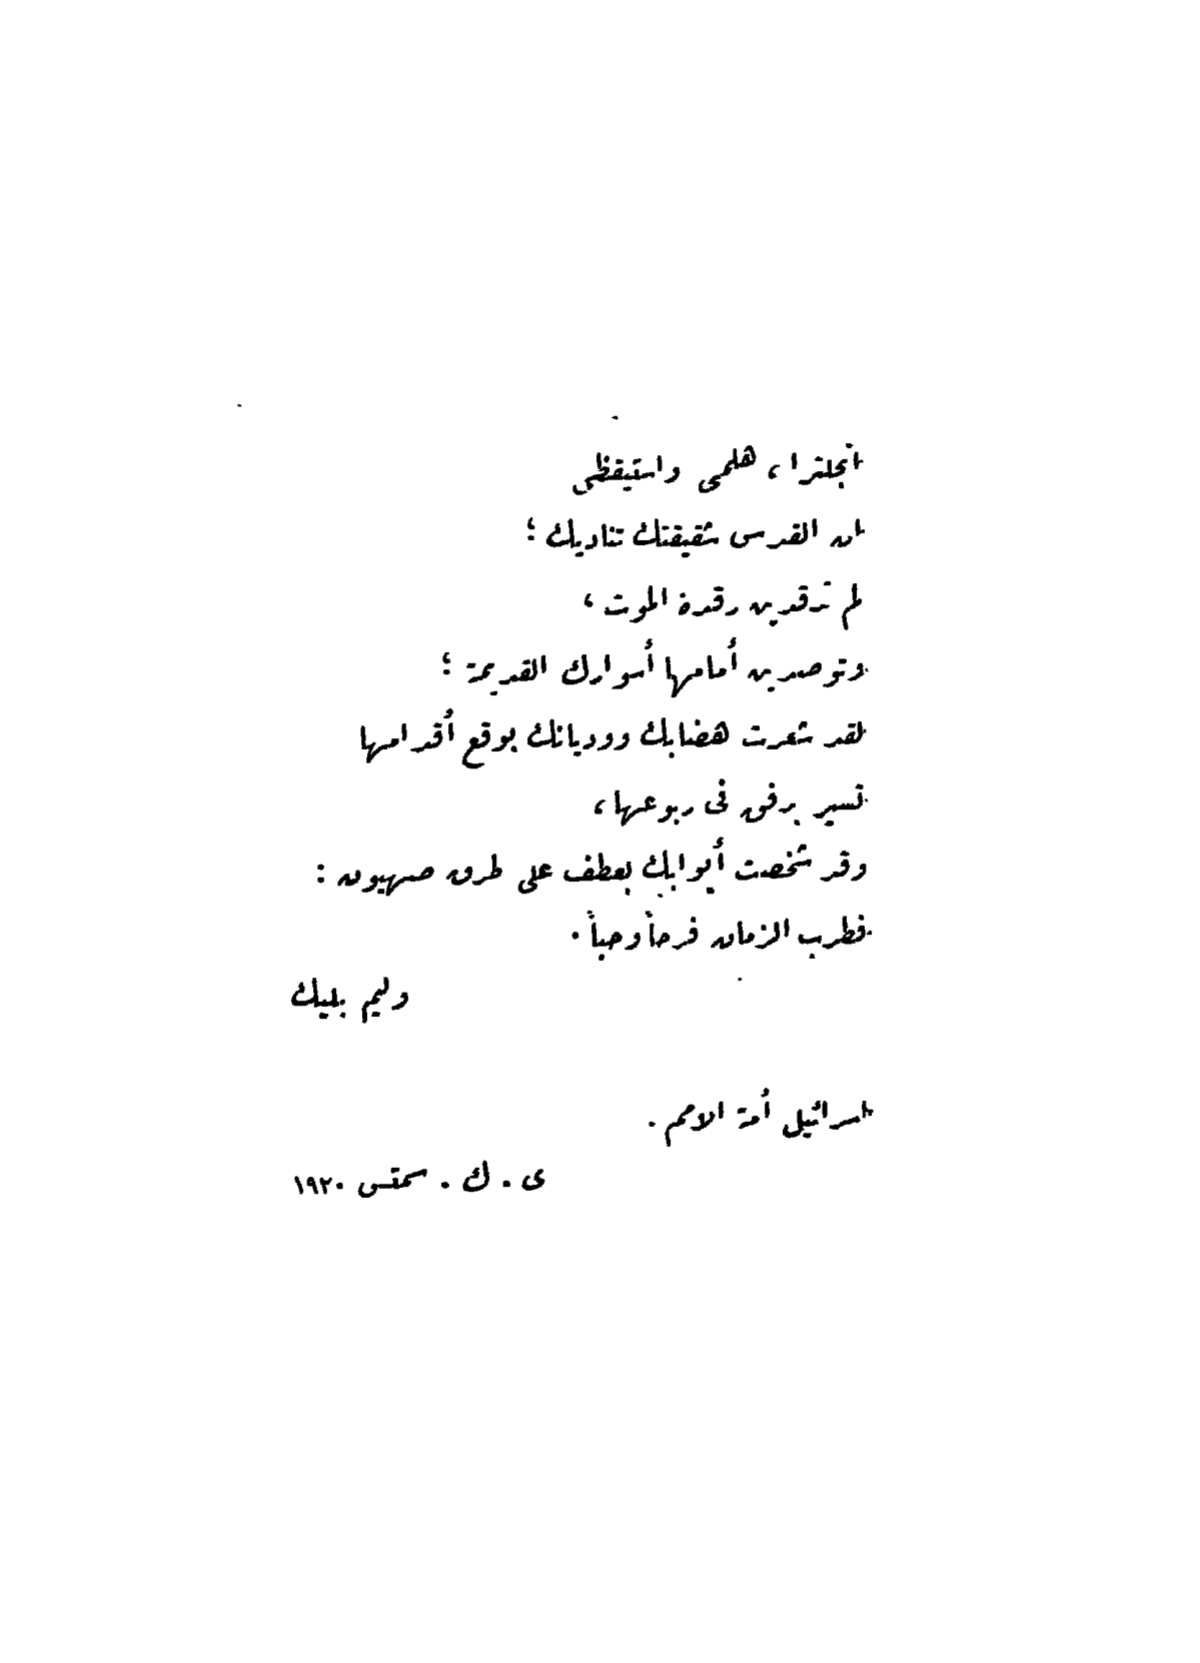 انجلترا، هلمى واستيقظى
ان القدس شقيقتك تناديك؛
لم ترقدين رقدة الموت،
وتوصدين أمامها أسوارك القديمة؛
لقد شعرت هضابك ووديانك بوقع أقدامها
تسير برفق فى ربوعها،
وقد شخصت أبوابك بعطف على طرق صهيون:
فطرب الزمان فرحاً وحباً.
وليم بليك
اسرائيل أمة الامم.
ى. ك. سمتس ١٩٢٠